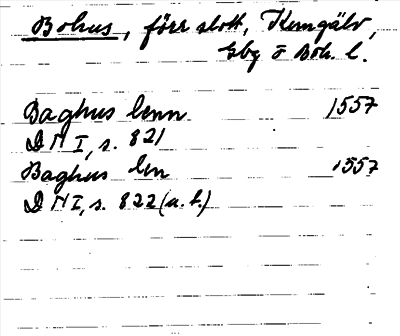 Bohus, förr slott, Kungälv,
Gbg o Boh. l.
Baghus lenn 1557
DN I, s. 821
Baghus len 1557
DN I, s. 822 (a. st.)